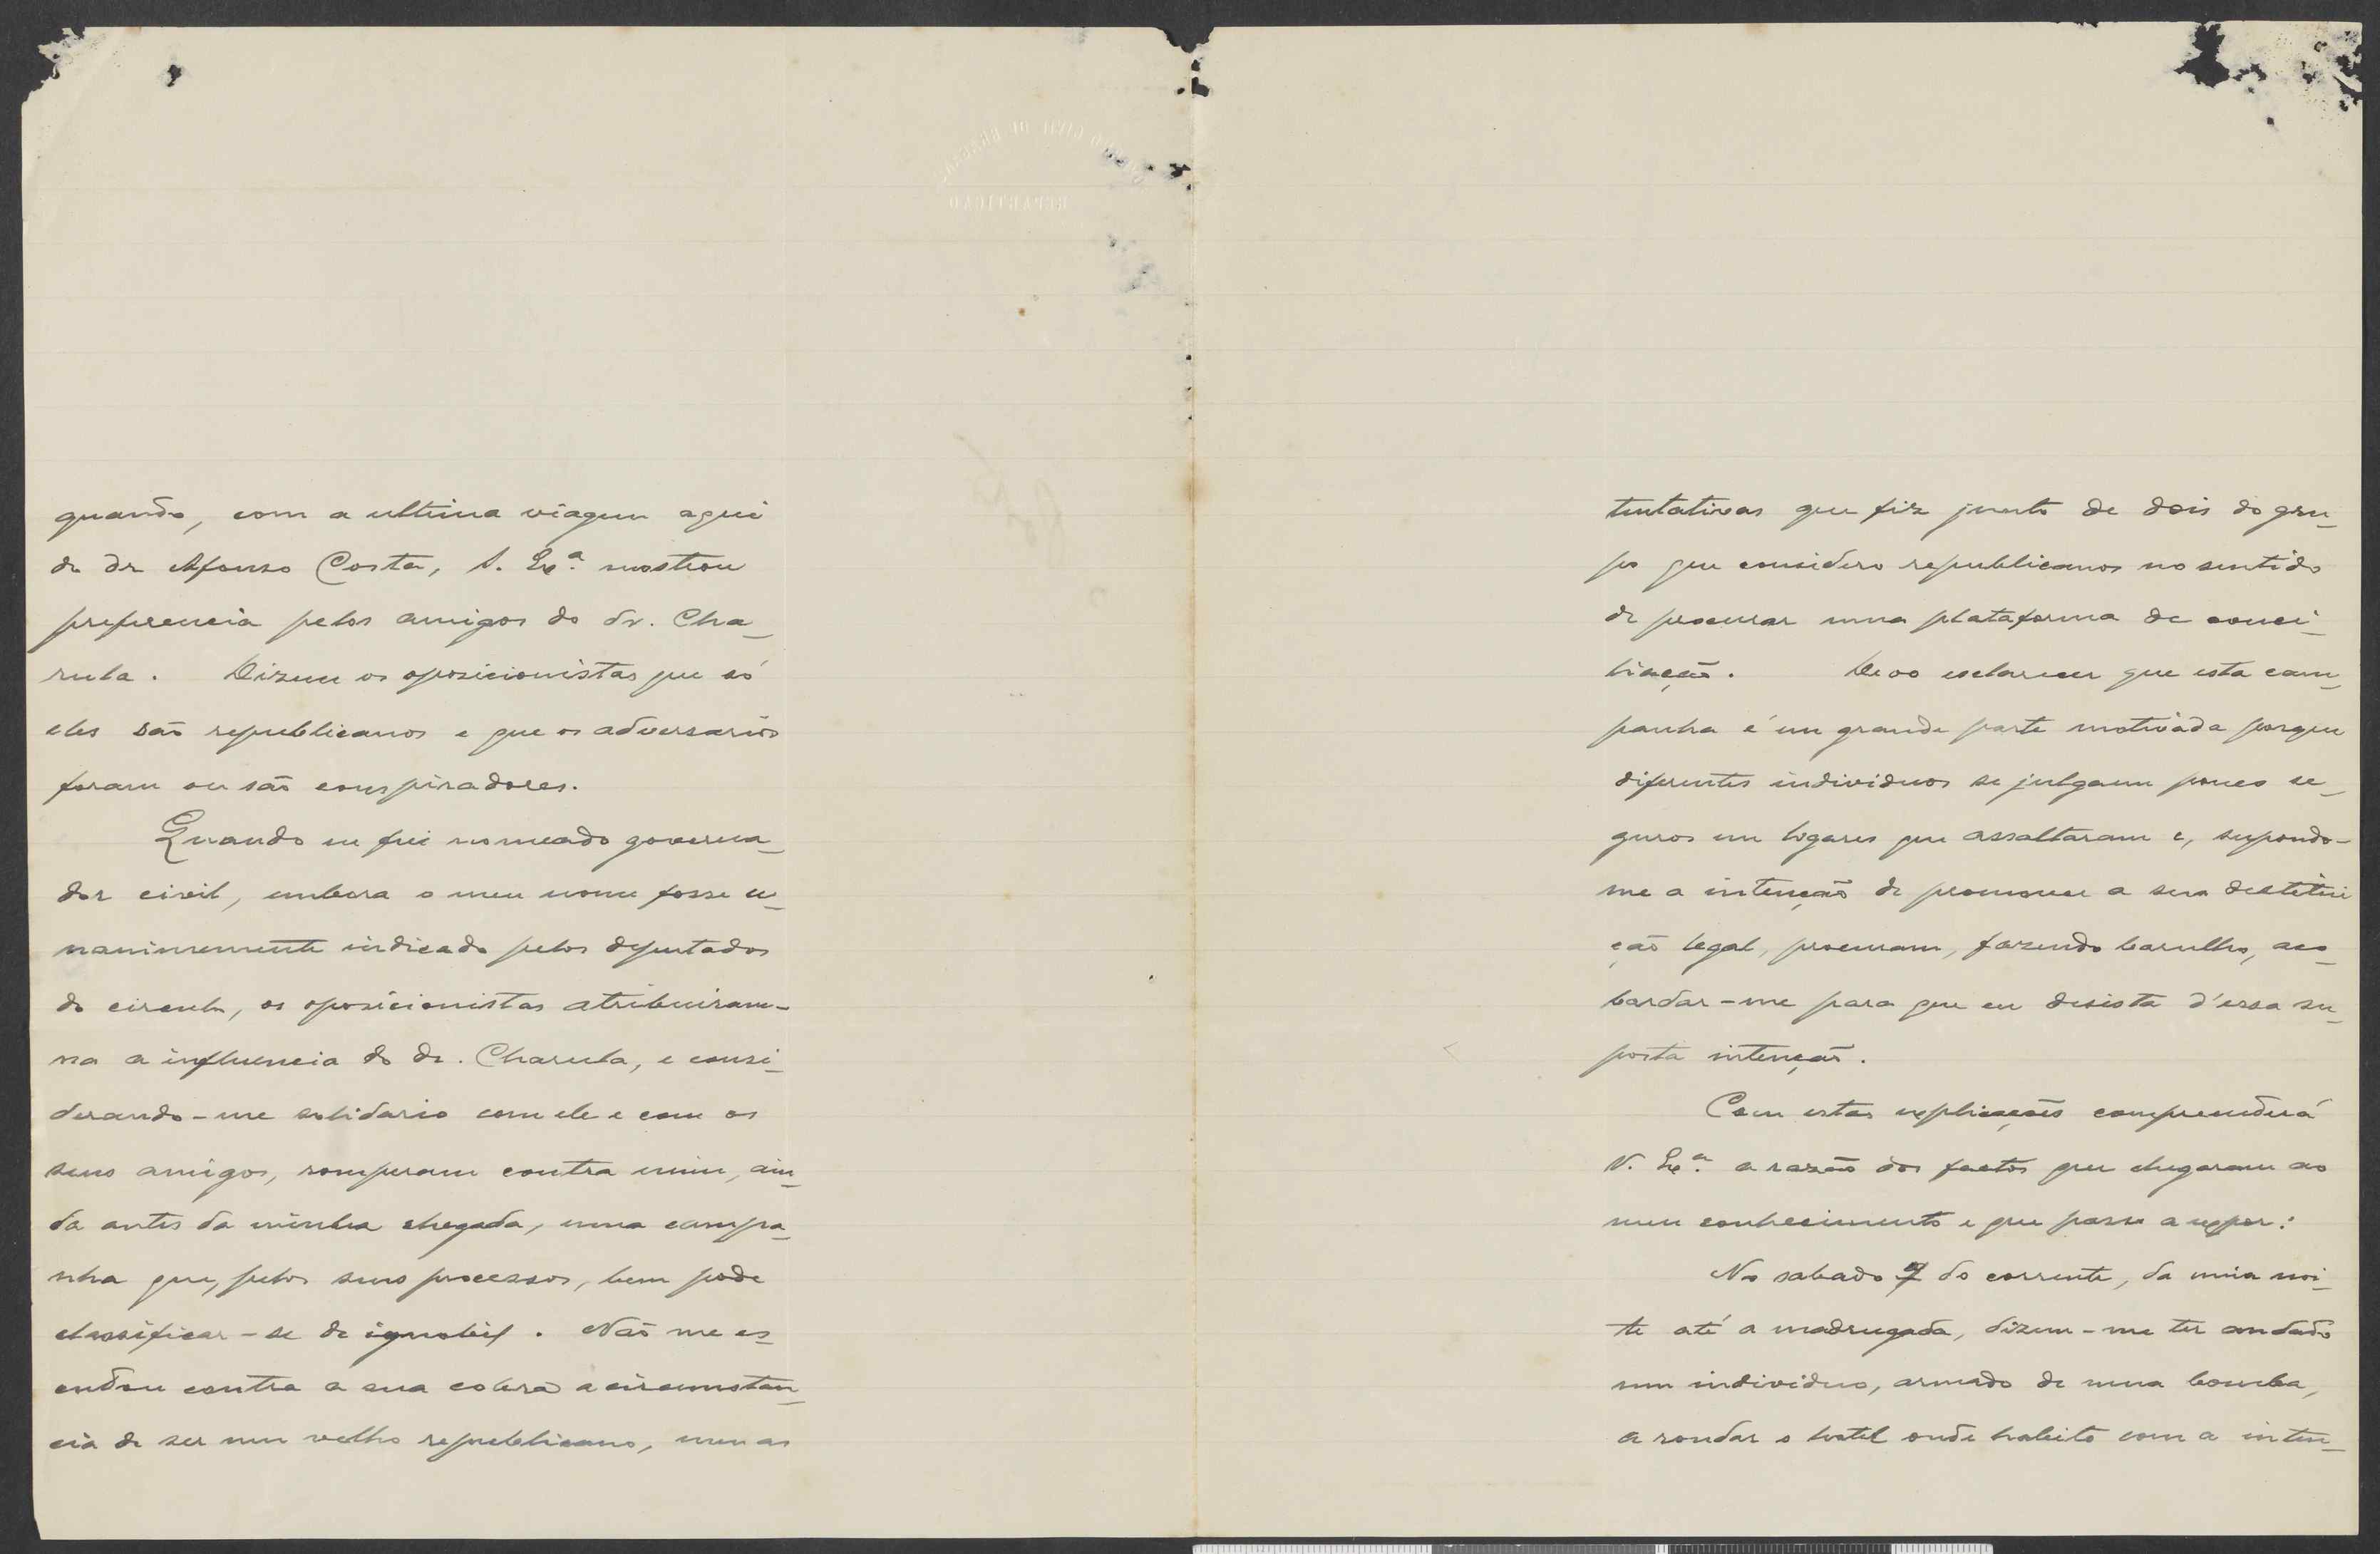 quando, com a ultima viagem aqui
do dr Afonso Costa, S. Exª. mostrou
preferencia pelos amigos do dr. Cha-
rula. Dizem os oposicionistas que só
eles são republicanos e que os adversarios
foram ou são conspiradores.
Quando eu fui nomeado governa-
dor civil, embora o meu nome fosse u-
nanimemente indicado pelos deputados
do circulo, os oposicionistas atribuiram-
na a influencia do dr. Charula, e consi-
derando-me solidario com ele e com os
seus amigos, romperam contra mim, ain-
da antes da minha chegada, uma campa-
nha que, pelos seus processos, bem pode
classificar-se de ignobil. Não me es-
cudou contra a sua colera a circumstan-
cia de ser um velho republicano, nem as
tentativas que fiz junto de dois do gru-
po que considero republicanos no sentido
de procurar uma plataforma de conci-
liação. Devo esclarecer que esta cam-
panha é em grande parte motivada porque
diferentes individuos se julgam pouco se-
guros em logares que assaltaram e, supondo-
me a intenção de promover a sua destitui
ção legal, procuram, fazendo barulho, aco-
bardar-me para que eu desista d'essa su-
posta intenção.
Com estas explicações comprenderá
V. Exª. a razão dos factos que chegaram ao
meu conhecimento e que passo a expor:
No sabado 7 do corrente, da meia noi-
te até a madrugada, dizem-me ter andado
um individuo, armado de uma bomba,
a rondar o hotel onde habito com a inten-